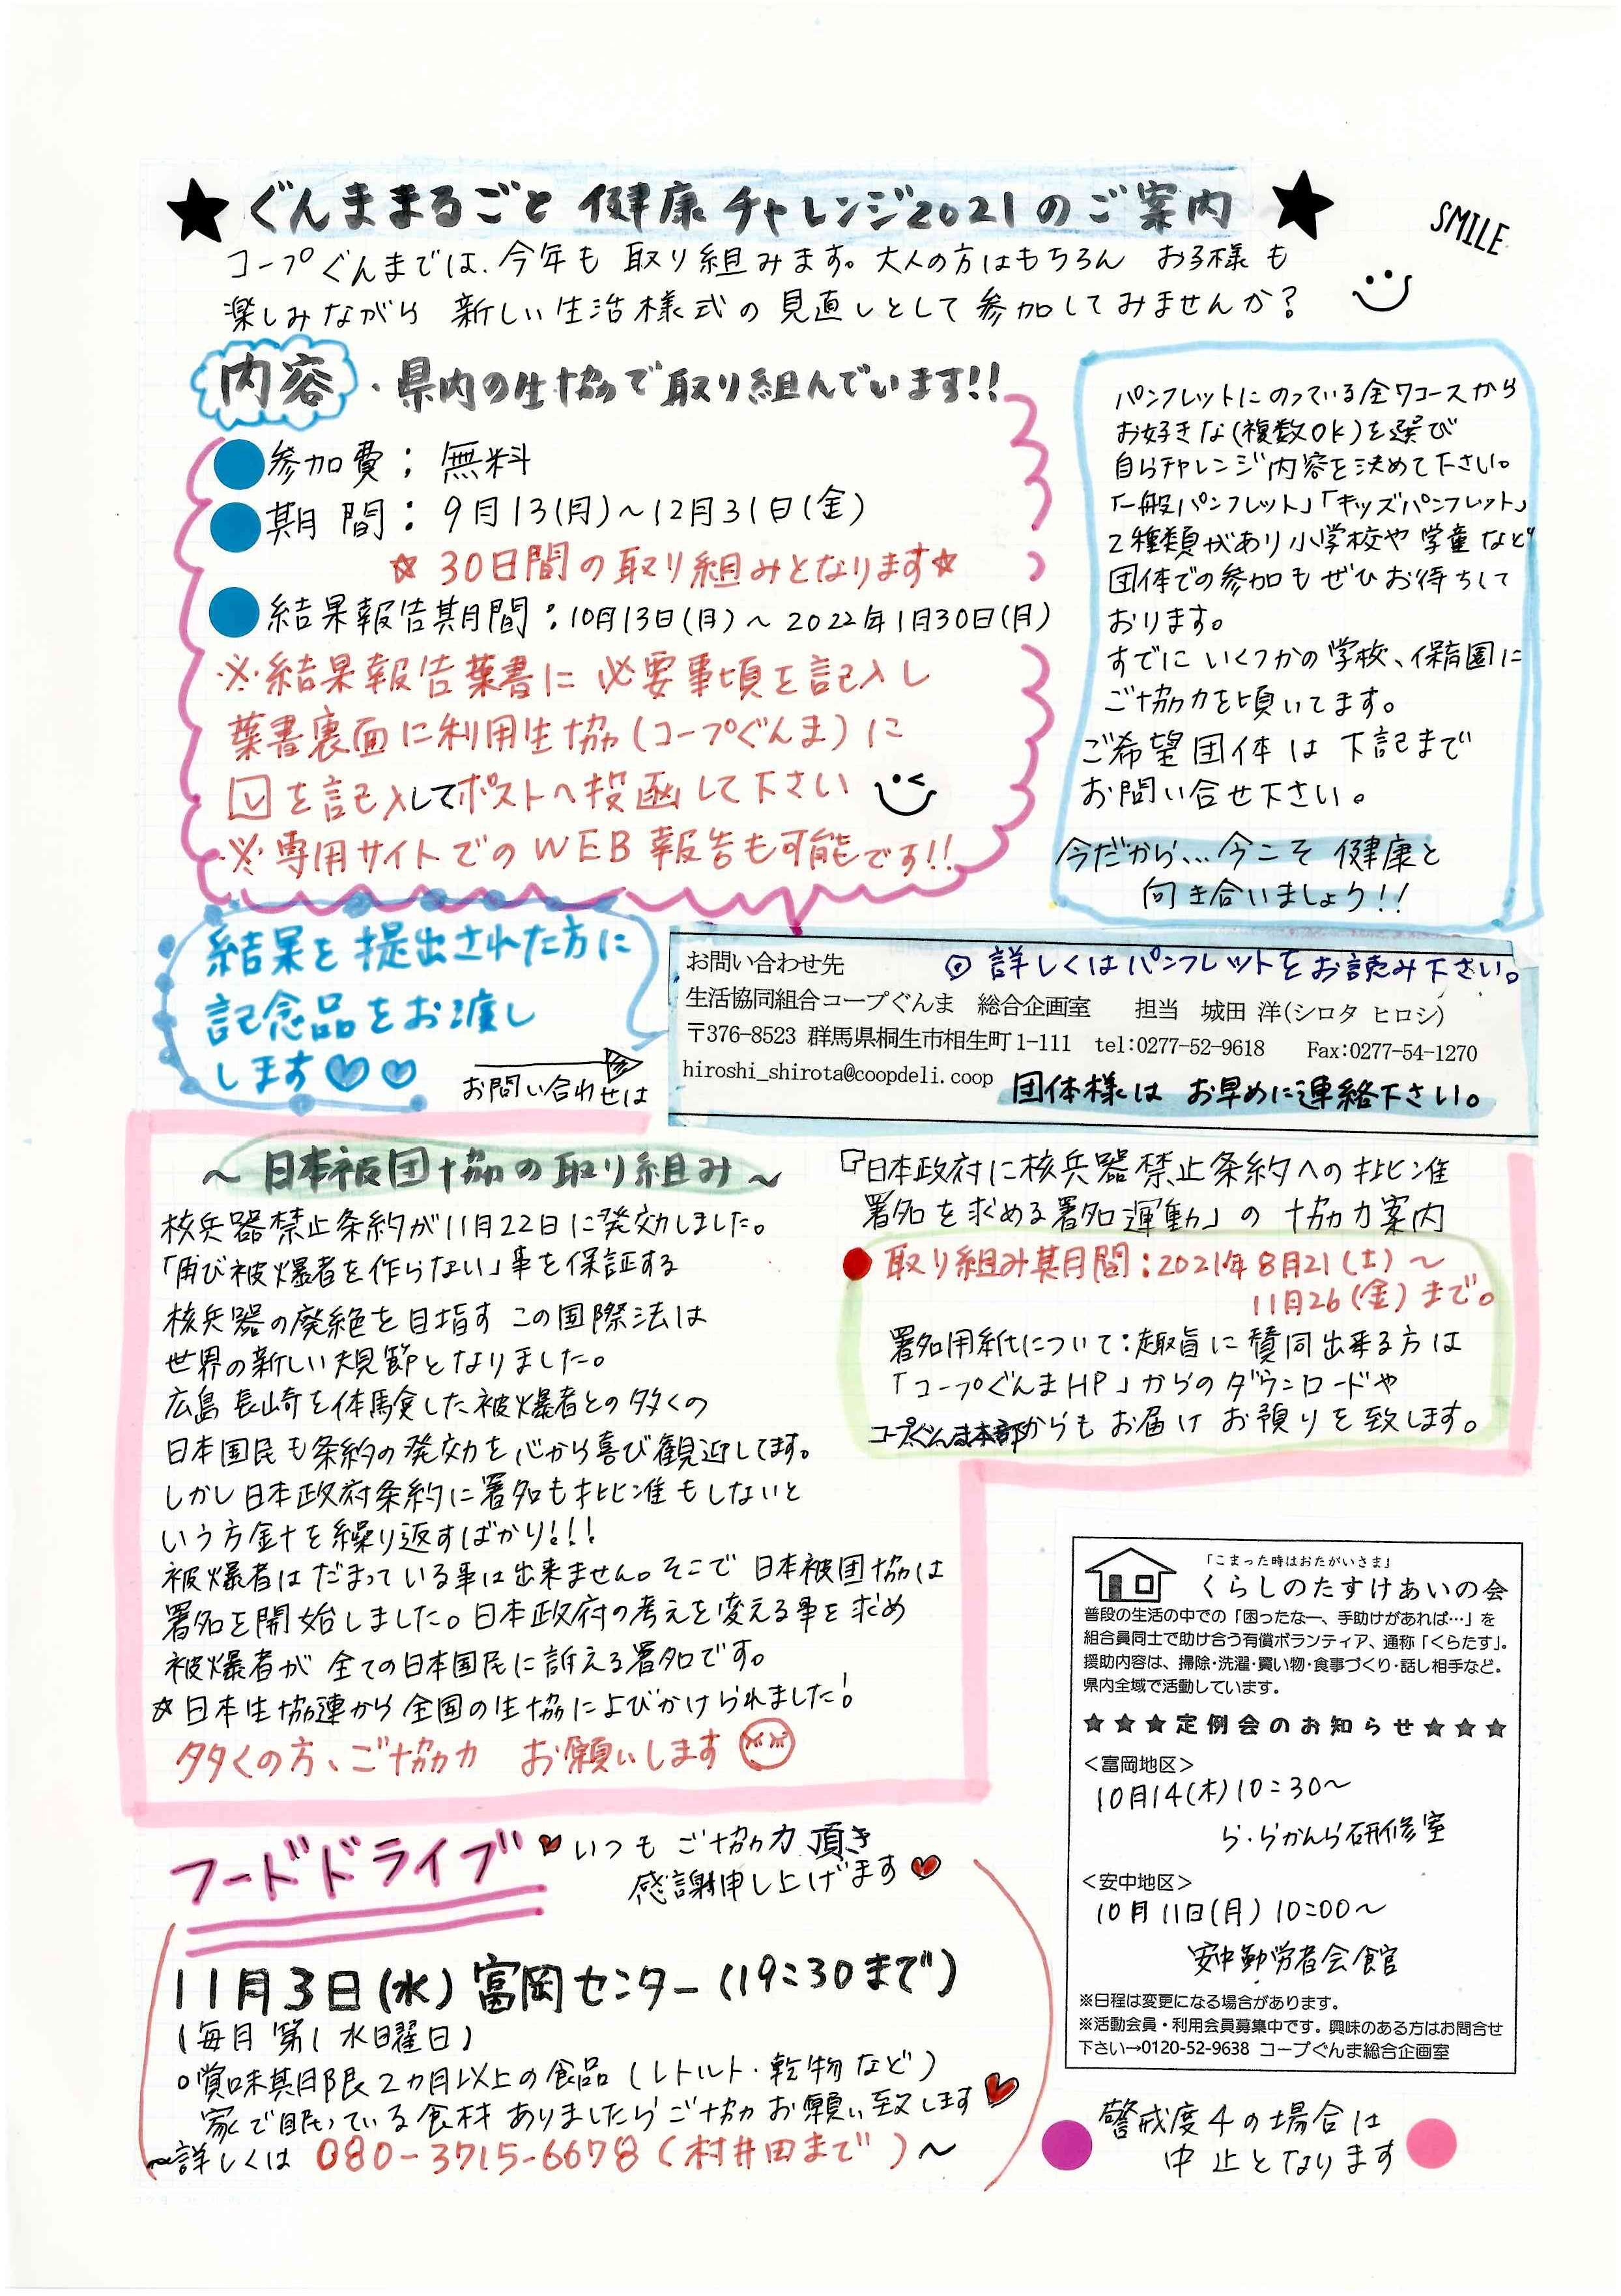 ★ぐんままるごと 健康チャレンジ2021のご案内★
SMILE
コープぐんまでは、今年も 取り組みます。大人の方はもちろん お子様も
楽しみながら 新しい生活様式の 見直しとして参加してみませんか?
内容・県内の生協で取り組んでいます!!
●参加費:無料
●期間:9月13(月)~12月31日(金)
☆30日間の取り組みとなります☆
●結果報告期間:10月13日(月)~2022年1月30日(月)
※結果報告葉書に 必要事項を記入し
葉書裏面に利用生協(コープぐんま)に
☑を記入してポストへ投函して下さい
※専用サイトでのWEB報告も可能です!!
パンフレットにのっている全7コースから
お好きな(複数OK)を選び
自らチャレンジ内容を決めて下さい。
「一般パンフレット」「キッズパンフレット」
2種類があり小学校や学童など
団体での参加もぜひお待ちして
おります。
すでに いくつかの学校、保育園に
ご協力を頂いてます。
ご希望団体は下記まで
お問い合せ下さい。
今だから…今こそ 健康と
向き合いましょう!!
結果を提出された方に
記念品をお渡し
します♡♡
お問い合わせは
お問い合わせ先
◎ 詳しくはパンフレットをお読み下さい。
生活協同組合コープぐんま 総合企画室 担当 城田 洋(シロタ ヒロシ)
〒376-8523 群馬県桐生市相生町1-111 tel:0277-52-9618 Fax:0277-54-1270
hiroshi_shirota@coopdeli.coop
団体様は お早めに連絡下さい。
~日本被団協の取り組み~
核兵器禁止条約が11月22日に発効しました。
「再び被爆者を作らない」事を保証する
核兵器の廃絶を目指す この国際法は
世界の新しい規節となりました。
広島 長崎を体験した被爆者との多くの
日本国民も条約の発効を心から喜び観迎してます。
しかし日本政府条約に署名も批准もしないと
いう方針を繰り返すばかり!!!
被爆者はだまっている事は出来ません。そこで 日本被団協は
署名を開始しました。日本政府の考えを変える事を求め
被爆者が 全ての日本国民に訴える署名です。
☆日本生協連から全国の生協によびかけられました!
多くの方、ご協力 お願いします
『日本政府に核兵器禁止条約への批准
署名を求める署名運動」の 協力案内
●取り組み期間:2021年8月21(土)~
11月26(金)まで。
署名用紙について:趣旨に賛同出来る方は
「コープぐんまHP」からのダウンロードや
コープぐんま本部からもお届けお預りを致します。
「こまった時はおたがいさま」
くらしのたすけあいの会
普段の生活の中での「困ったなー、手助けがあれば…」を
組合員同士で助け合う有償ボランティア、通称「くらたす」。
援助内容は、掃除・洗濯・買い物・食事づくり・話し相手など。
県内全域で活動しています。
★★★定例会のお知らせ★★★
<富岡地区>
10月14(木)10:30~
ら・らかんら研修室
<安中地区>
10月11日(月)10:00~
安中勤労者会館
※日程は変更になる場合があります。
※活動会員・利用会員募集中です。興味のある方はお問合せ
下さい→0120-52-9638 コープぐんま総合企画室
フードドライブ
いつもご協力頂き
感謝申し上げます
11月3日(水)富岡センター(19:30まで)
(毎月第1水曜日)
○賞味期限2カ月以上の食品(レトルト・乾物など)
家で眠っている食材ありましたらご協力お願い致します
~詳しくは 080-3715-6678(村井田まで)~
警戒度4の場合は
中止となります